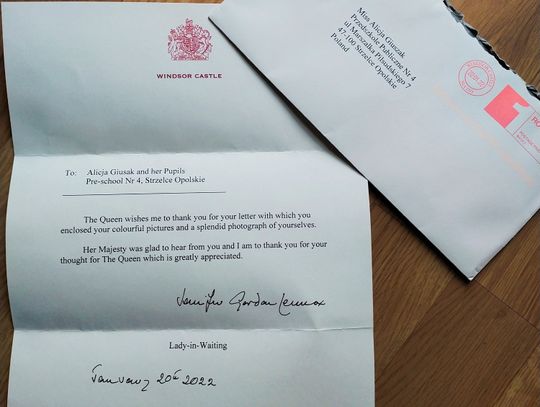 WINDSOR CASTLE
To: Alicja Giusak and her Pupils
Pre-school Nr 4, Strzelce Opolskie
The Queen wishes me to thank you for your letter with which you
enclosed your colourful pictures and a splendid photograph of yourselves.
Her Majesty was glad to hear from you and I am to thank you for your
thought for The Queen which is greatly appreciated.
Jennifer Gordon Lennox
Lady-in-Waiting
January 20th 2022
Miss Alicja Giuszak
Przedszkole Publiczne Nr 4
ul Marszalka Pilsudskiego 7
47-100 Strzelce Opolskie
Poland